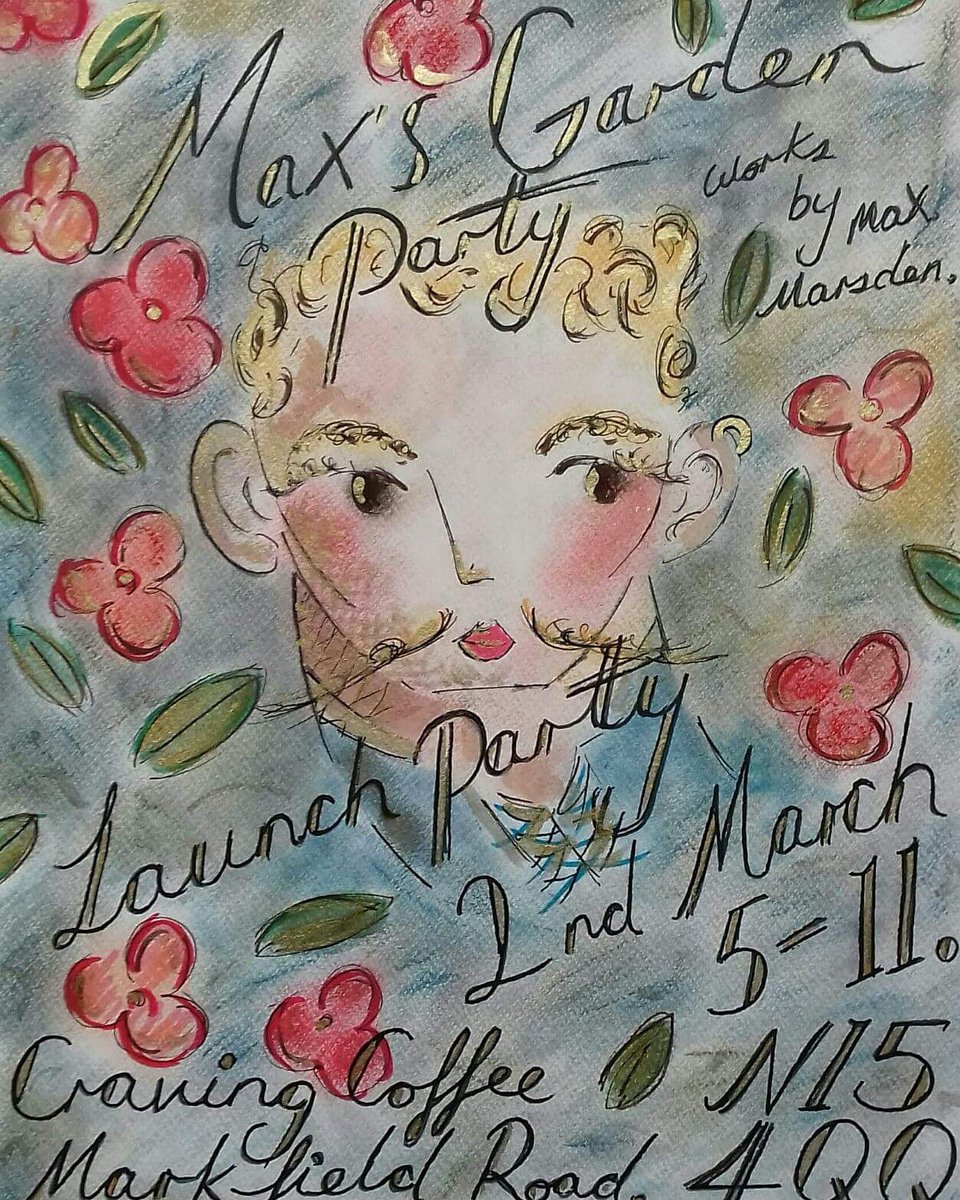 Max's Garden
Party
Works
by Max
Marsden.
Launch Party
2nd March
5-11.
Craving Coffee N15
Markfield Road. 4QQ